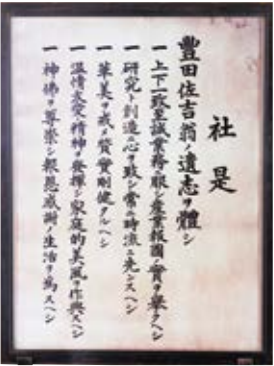 社是
豊田佐吉翁ノ遺志ヲ體シ
一 上下一致至誠業務ニ服シ産業報國ノ實ヲ擧クヘシ
一 研究ト創造ニ心ヲ致シ常ニ時流ニ先ンスヘシ
一 華美ヲ戒メ質實剛健タルヘシ
一 温情友愛ノ精神ヲ發揮シ家庭的美風ヲ作興スヘシ
一 神佛ヲ尊崇シ報恩感謝ノ生活ヲ為スヘシ